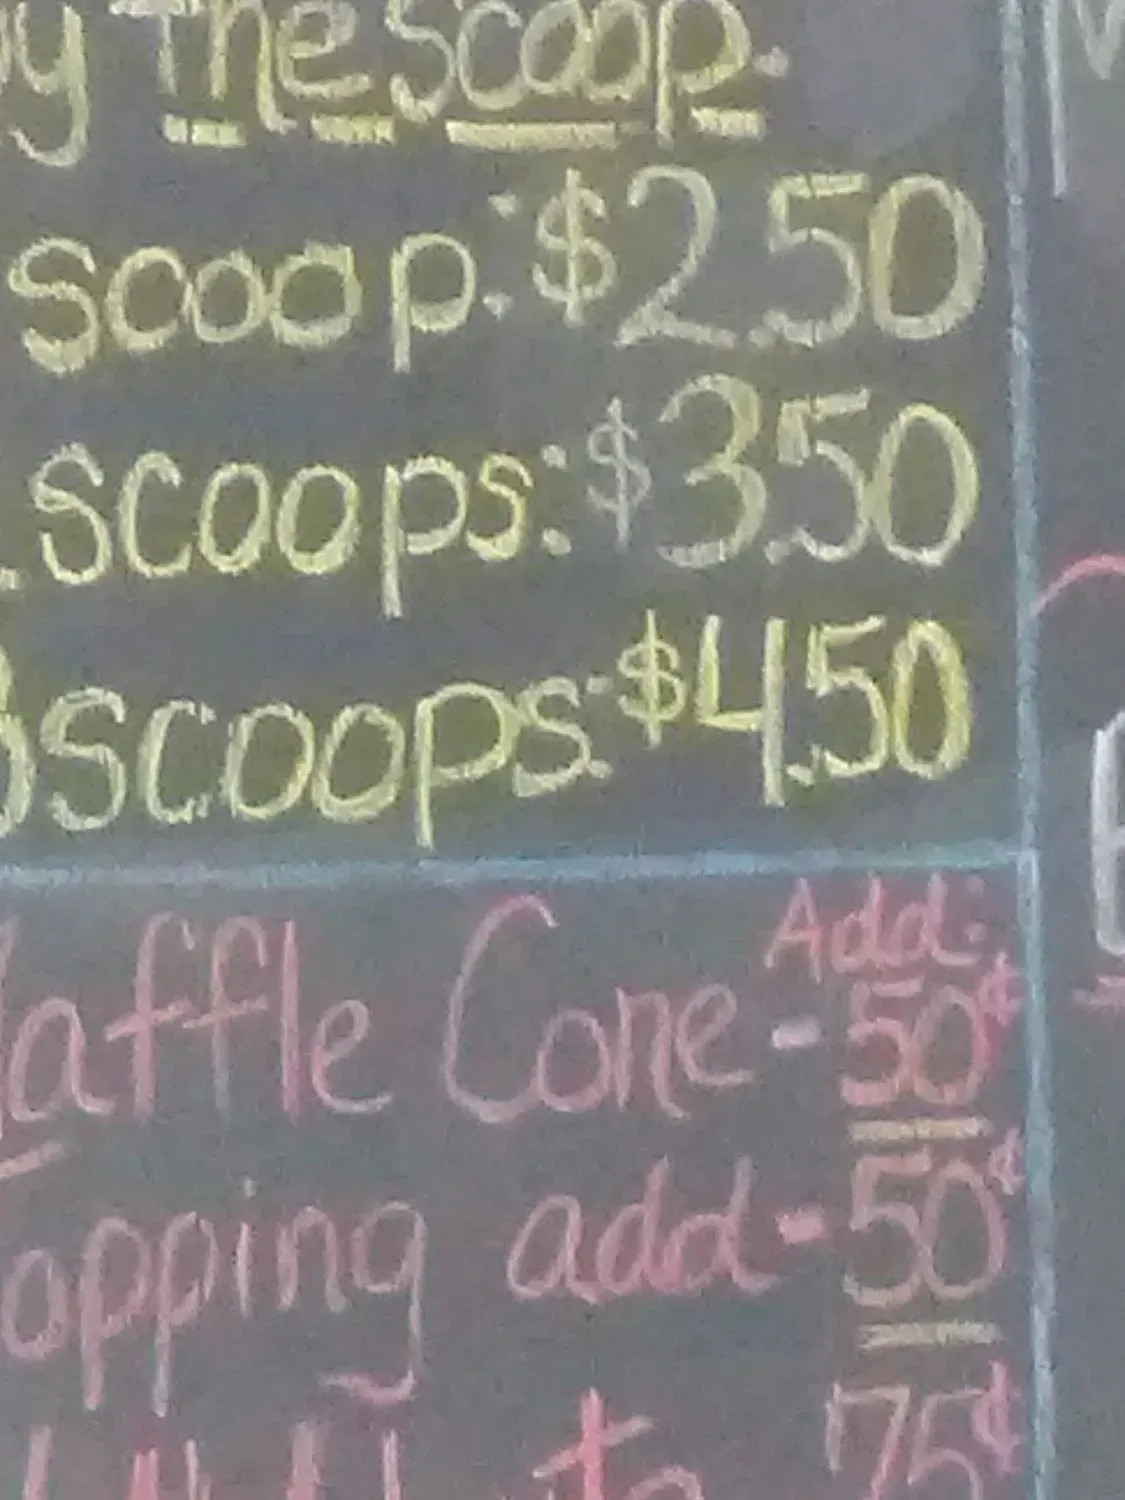 the scoop.
scoop: $2.50
scoops: $3.50
scoops: $4.50
Add:
affle Cone - 50¢
opping add - 50¢
75¢